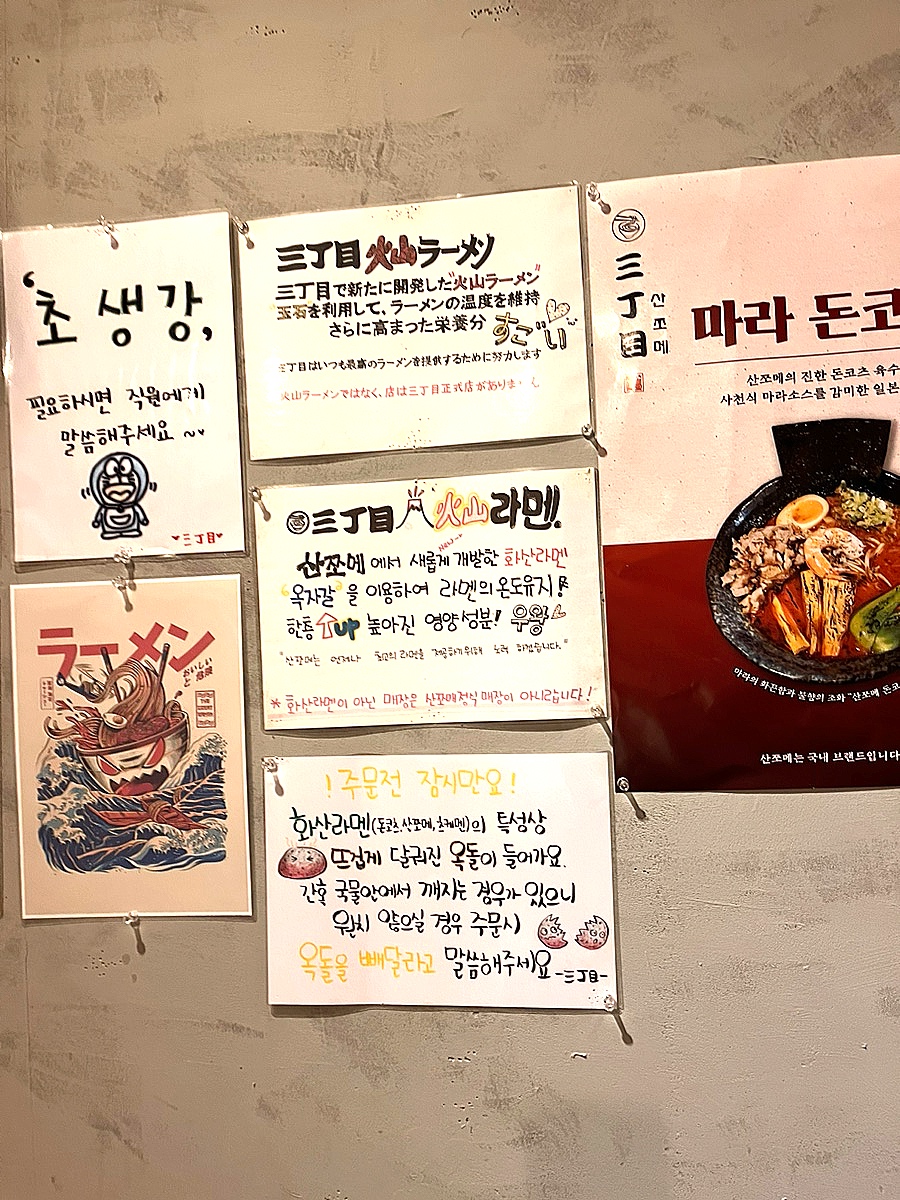 '초생강,
필요하시면 직원에게
말씀해주세요 ~
♥三丁目♥
ラーメン
おいしい
と危険
三丁目火山ラーメン
三丁目で新たに開発した"火山ラーメン"
玉石を利用して、ラーメンの温度を維持
さらに高まった栄養分 すご〜い
三丁目はいつも最高のラーメンを提供するために努力します
火山ラーメンではなく、店は三丁目正式店がありません
三丁目 火山라멘!
new
산쪼메에서 새롭게 개발한 화산라멘
"옥자갈"을 이용하여 라멘의 온도유지!
한층 up 높아진 영양성분! 우왕
"산쪼메는 언제나 최고의 라멘을 제공하기위해 노력 하겠습니다."
* 화산라멘이 아닌 매장은 산쪼메정식 매장이 아니랍니다!
! 주문전 잠시만요 !
화산라멘(돈코츠,산쪼메,츠케멘)의 특성상
뜨겁게 달궈진 옥돌이 들어가요.
간혹 국물안에서 깨지는 경우가 있으니
원치 않으실 경우 주문시
옥돌을 빼달라고 말씀해주세요
-三丁目-
三丁目
산쪼메
마라 돈코
산쪼메의 진한 돈코츠 육수
사천식 마라소스를 가미한 일본
마라의 화끈함과 불향의 조화 "산쪼메 돈코
산쪼메는 국내 브랜드입니다